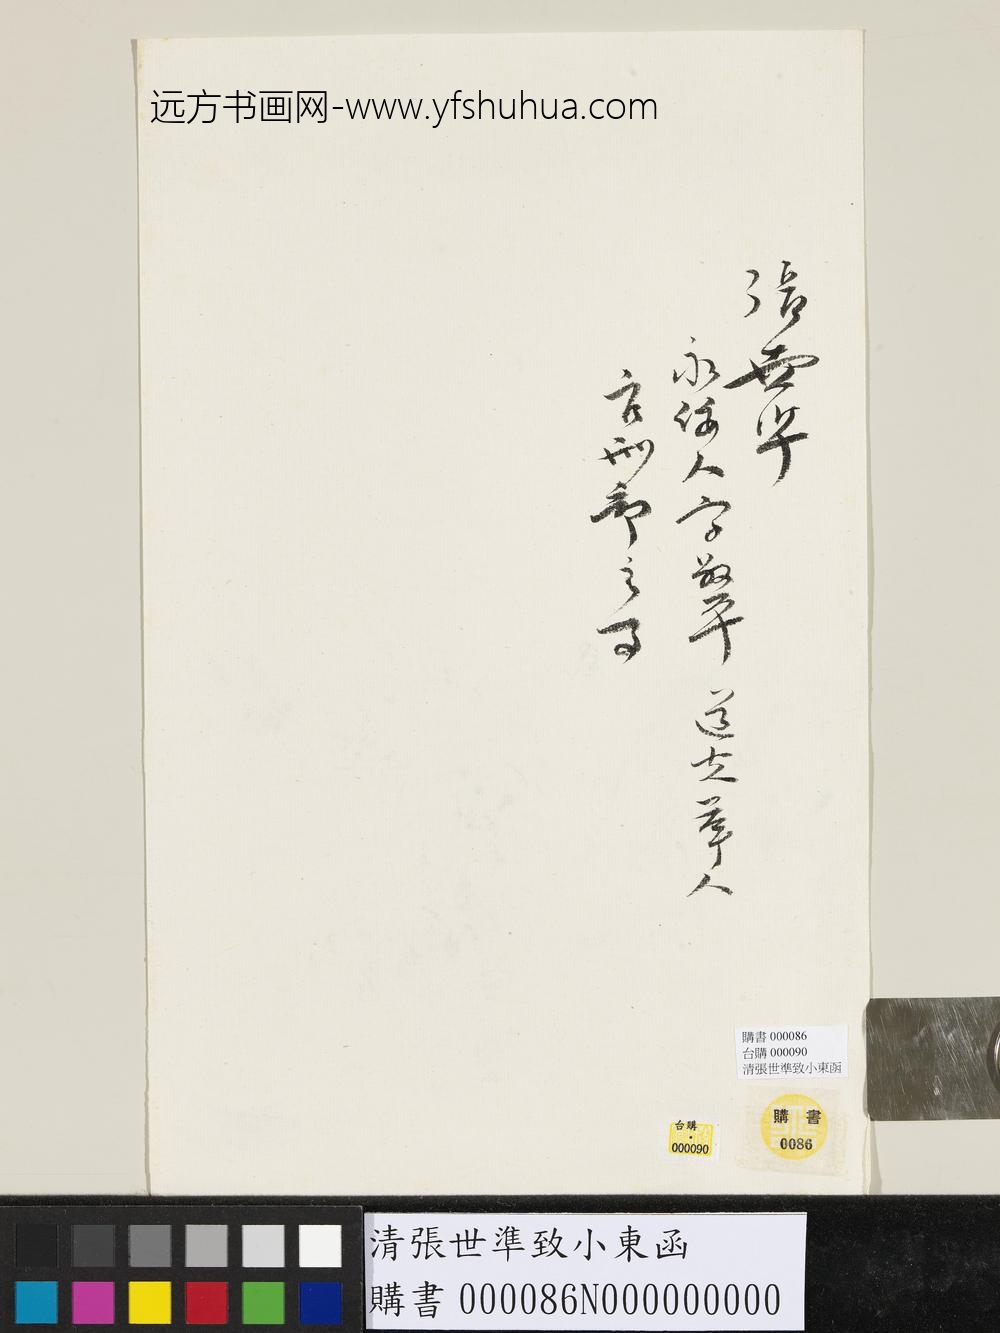 远方书画网-www.yfshuhua.com
張世準
永綏人字叔平 道光舉人
官刑部主事
購書 000086
台購 000090
清張世準致小東函
購 書
0086
台購
000090
清張世準致小東函
購書 000086N000000000